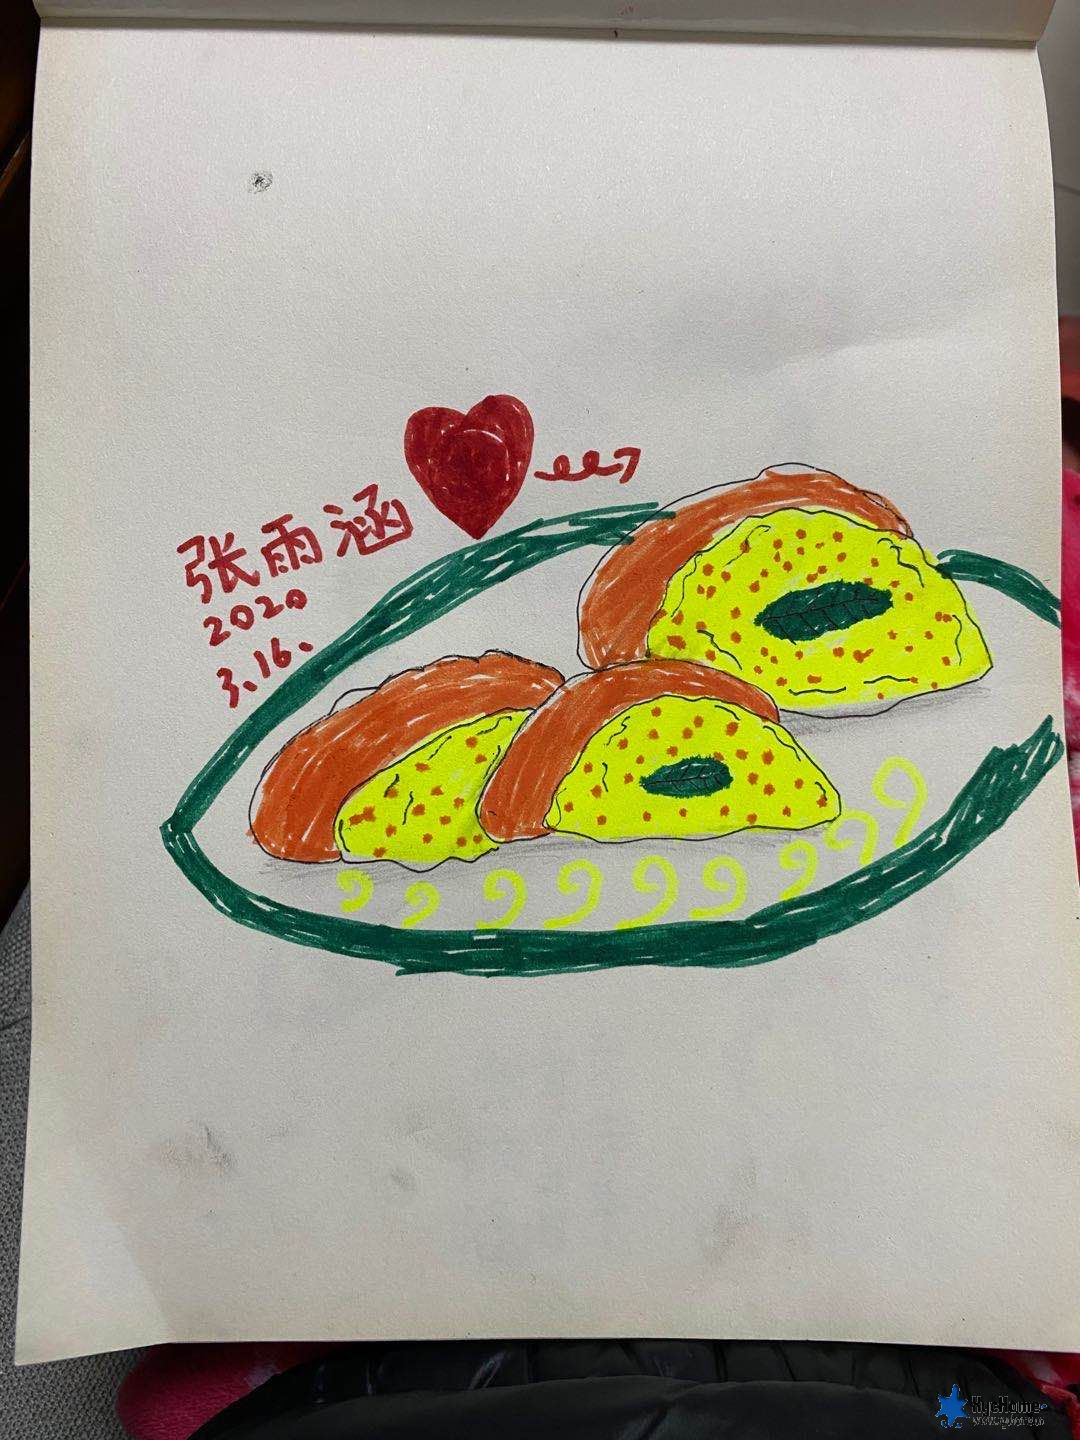 张雨涵
2020
3.16、